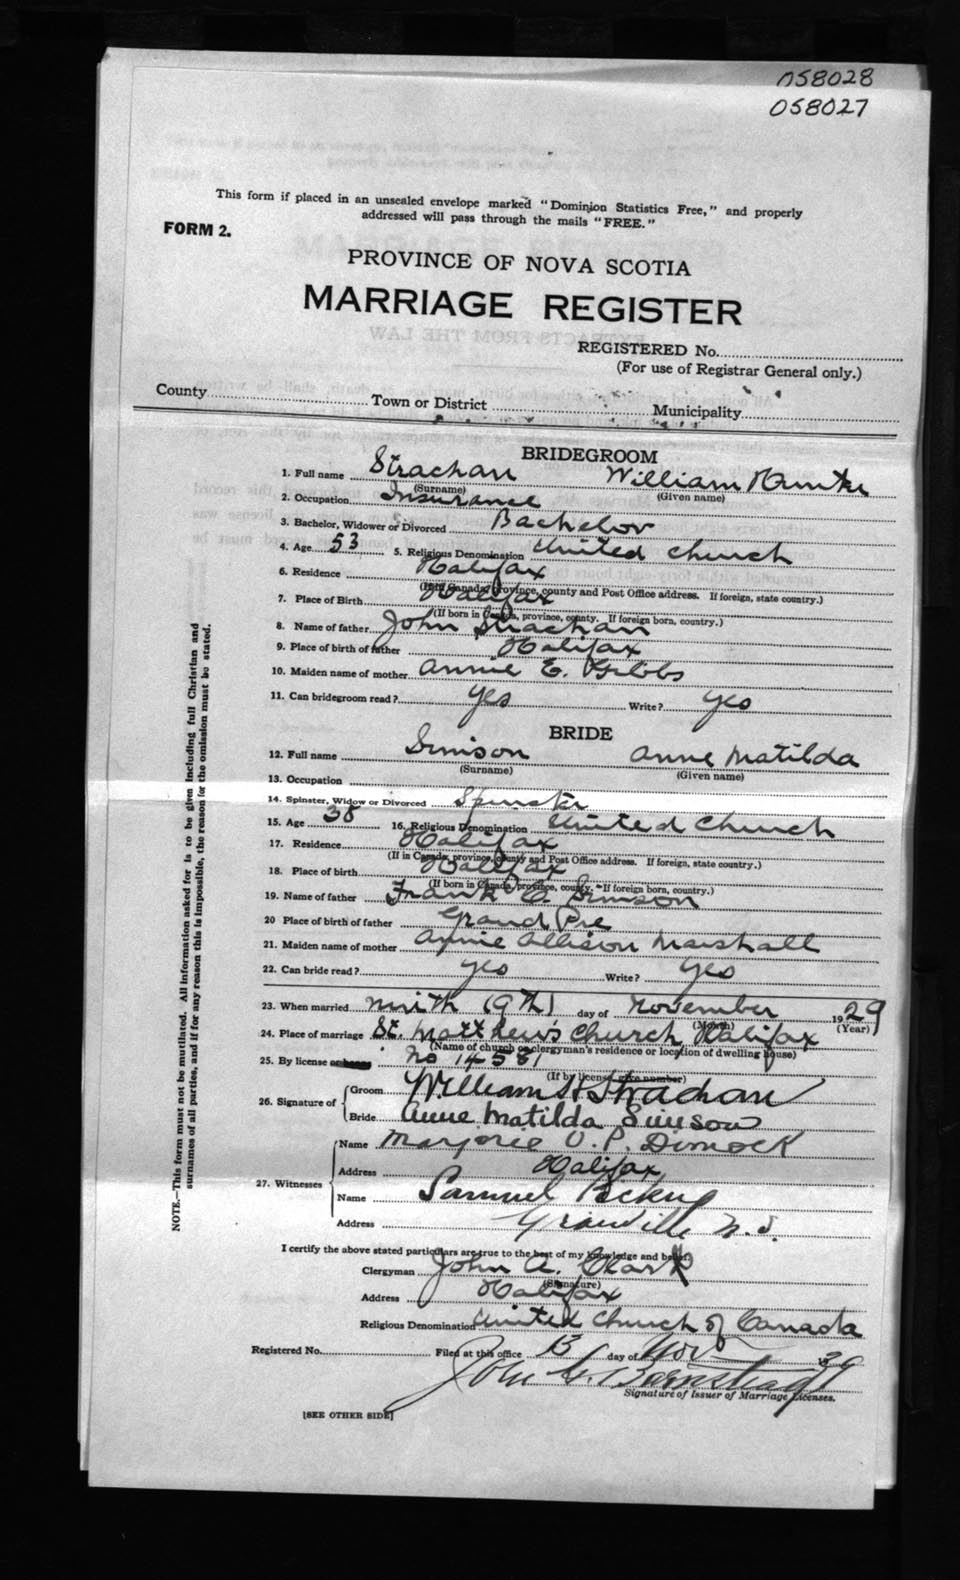 058028
058027
This form if placed in an unsealed envelope marked "Dominion Statistics Free," and properly
addressed will pass through the mails "FREE."
FORM 2.
PROVINCE OF NOVA SCOTIA
MARRIAGE REGISTER
REGISTERED No.
(For use of Registrar General only.)
County Town or District Municipality
BRIDEGROOM
1. Full name Strachan William Hunter
(Surname) (Given name)
2. Occupation Insurance
3. Bachelor, Widower or Divorced Bachelor
4. Age 53 5. Religious Denomination United Church
6. Residence Halifax
(If in Canada, province, county and Post Office address. If foreign, state country.)
7. Place of Birth Halifax
(If born in Canada, province, county. If foreign born, country.)
8. Name of father John Strachan
9. Place of birth of father Halifax
10. Maiden name of mother Annie E. Gibbs
11. Can bridegroom read? yes Write? yes
BRIDE
12. Full name Simson Anne Matilda
(Surname) (Given name)
13. Occupation
14. Spinster, Widow or Divorced Spinster
15. Age 38 16. Religious Denomination United Church
17. Residence Halifax
(If in Canada, province, county and Post Office address. If foreign, state country.)
18. Place of birth Halifax
(If born in Canada, province, county. If foreign born, country.)
19. Name of father Frank C. Simson
20 Place of birth of father Grand Pre
21. Maiden name of mother Annie Allison Marshall
22. Can bride read? yes Write? yes
23. When married ninth (9th) day of November 1929
(Month) (Year)
24. Place of marriage St. Matthew's Church Halifax
(Name of church or clergyman's residence or location of dwelling house)
25. By license or No 14581
(If by license give number)
26. Signature of Groom William H Strachan
Bride Anne Matilda Simson
27. Witnesses Name Marjorie O. P. Dimock
Address Halifax
Name Samuel
Address Granville N.S.
I certify the above stated particulars are true to the best of my knowledge and belief.
Clergyman John A. Clark
(Signature)
Address Halifax
Religious Denomination United Church of Canada
Registered No. Filed at this office 13 day of Nov 1929
John C. Barnstead
Signature of Issuer of Marriage Licenses.
[SEE OTHER SIDE]
NOTE.—This form must not be mutilated. All information asked for is to be given including full Christian and
surnames of all parties, and if for any reason this is impossible, the reason for the omission must be stated.